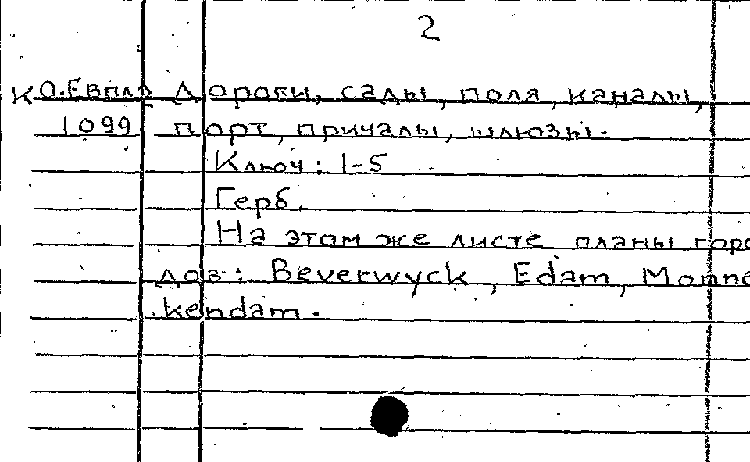 2
К О.Евпло Дороги, сады, поля, каналы,
1099 порт, причалы, шлюзы.
Ключ: 1-5
Герб.
На этом же листе планы горо
дов: Beverwyck, Edam, Monne
kendam.